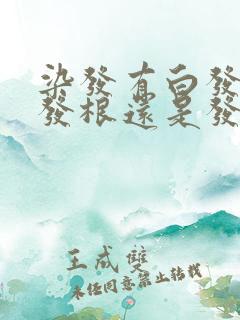 染發有白發
發根還是發
王成雙
未经同意禁止转载